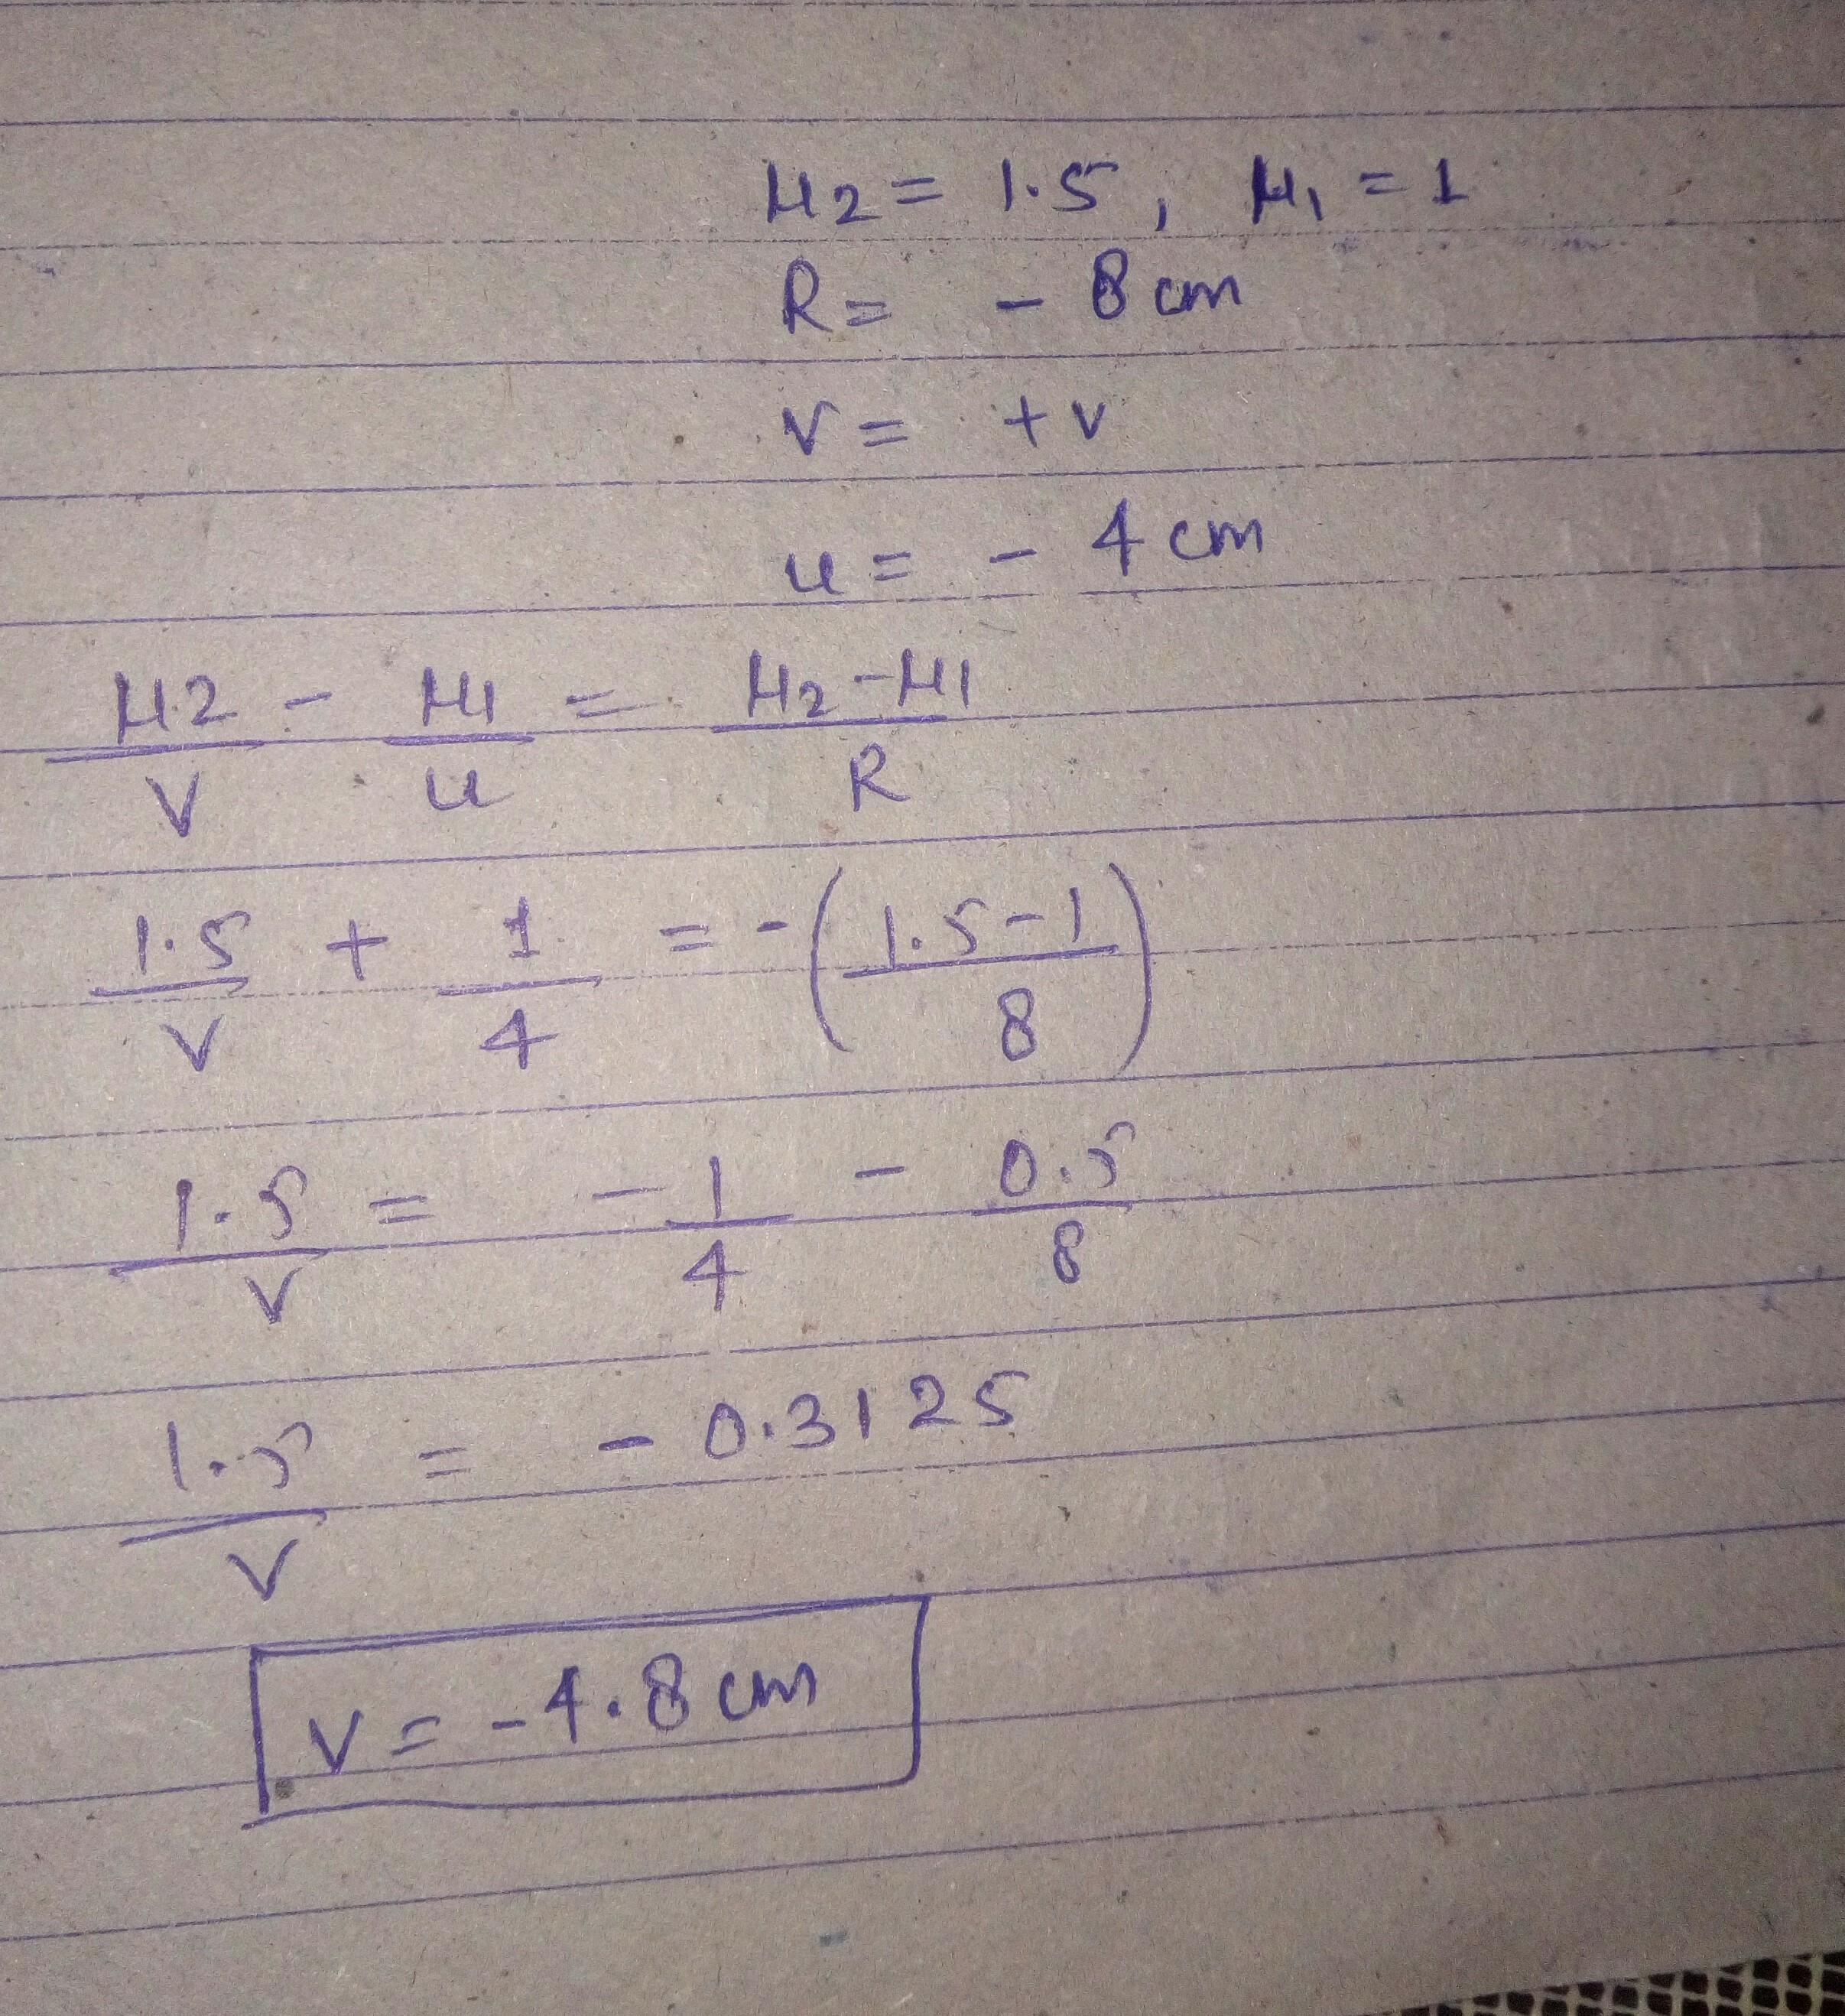 μ2 = 1.5, μ1 = 1
R = - 8 cm
v = + v
u = - 4 cm
μ2/v - μ1/u = μ2-μ1/R
1.5/v + 1/4 = -(1.5-1/8)
1.5/v = -1/4 - 0.5/8
1.5/v = - 0.3125
v = -4.8 cm